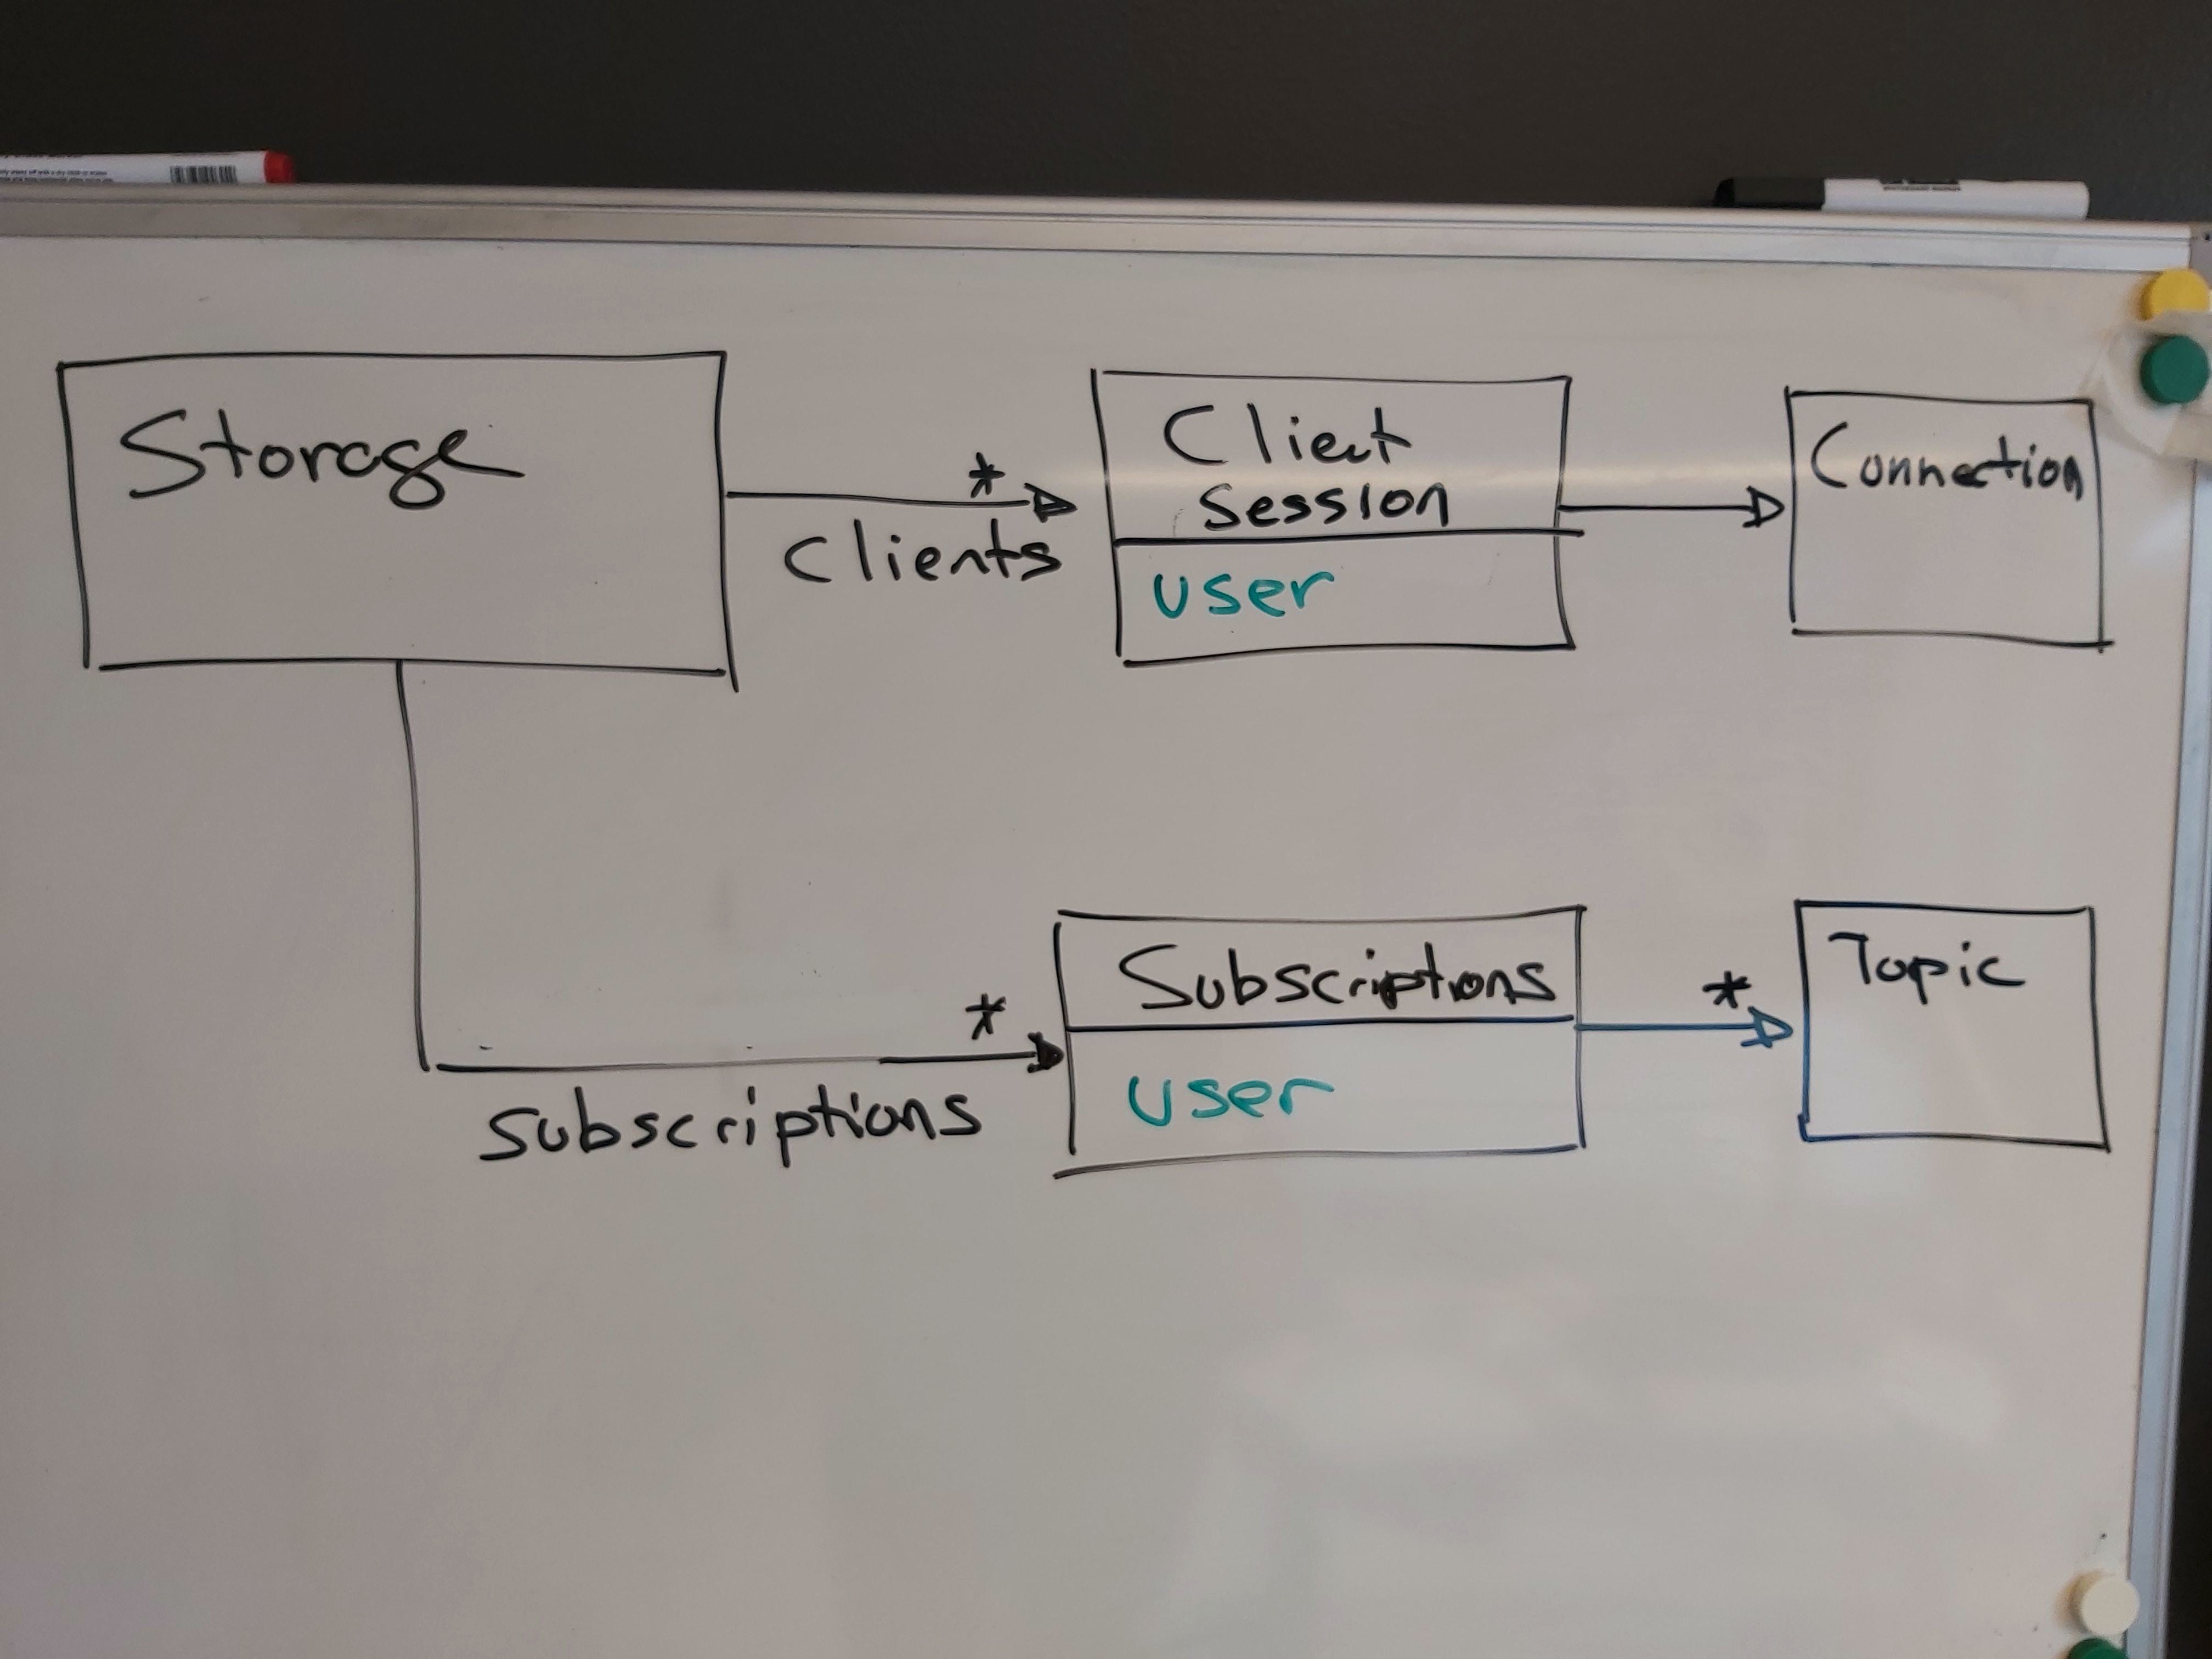 Storage
*
Clients
Client
Session
user
Connection
*
subscriptions
Subscriptions
user
*
Topic